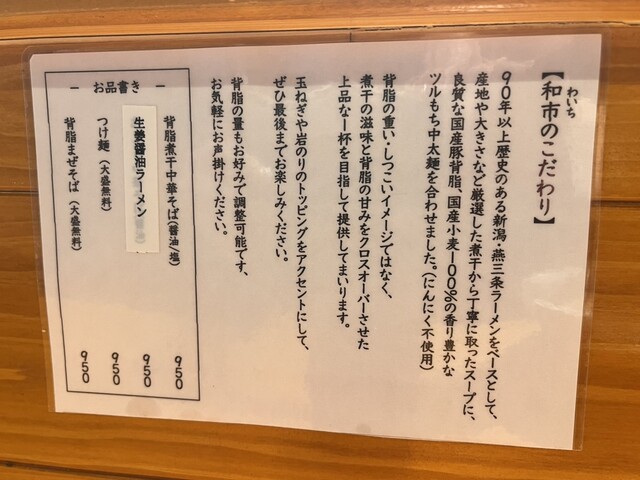 わいち
【和市のこだわり】
90年以上歴史のある新潟・燕三条ラーメンをベースとして、
産地や大きさなど厳選した煮干から丁寧に取ったスープに、
良質な国産豚背脂、国産小麦100%の香り豊かな
ツルもち中太麺を合わせました。(にんにく不使用)
背脂の重い・しつこいイメージではなく、
煮干の滋味と背脂の甘みをクロスオーバーさせた
上品な一杯を目指して提供してまいります。
玉ねぎや岩のりのトッピングをアクセントにして、
ぜひ最後までお楽しみください。
背脂の量もお好みで調整可能です、
お気軽にお声掛けください。
― お品書き ―
背脂煮干中華そば(醤油/塩) 950
生姜醤油ラーメン 950
つけ麺(大盛無料) 950
背脂まぜそば(大盛無料) 950